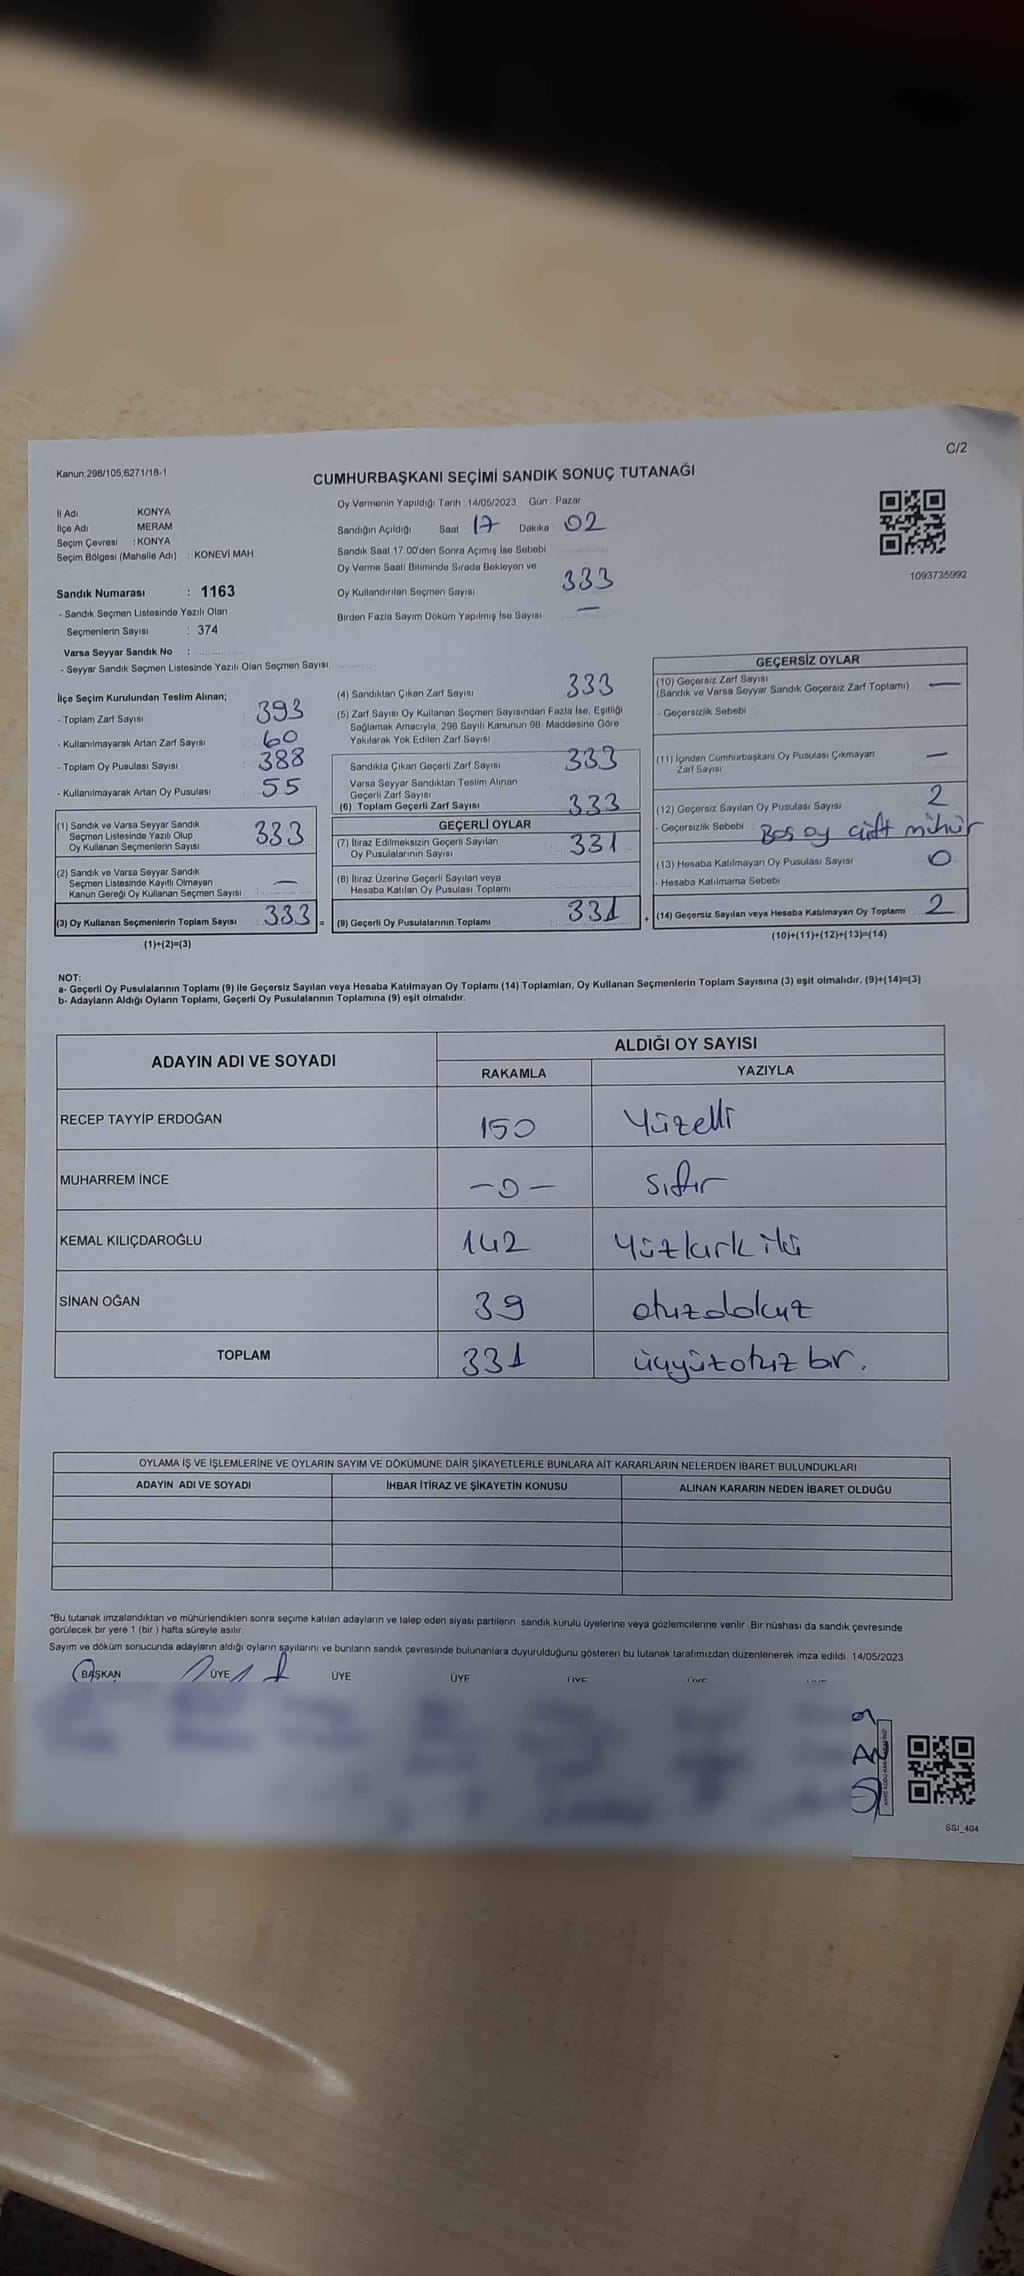 C/2
Kanun;298/105,6271/18-1
CUMHURBAŞKANI SEÇİMİ SANDIK SONUÇ TUTANAĞI
Oy Vermenin Yapıldığı Tarih : 14/05/2023 Gün : Pazar
İl Adı : KONYA
İlçe Adı : MERAM
Seçim Çevresi : KONYA
Seçim Bölgesi (Mahalle Adı) : KONEVİ MAH
Sandığın Açıldığı Saat : 17 Dakika : 02
Sandık Saat 17.00'den Sonra Açımış İse Sebebi
Oy Verme Saati Bitiminde Sırada Bekleyen ve
Oy Kullandırılan Seçmen Sayısı 333
Birden Fazla Sayım Döküm Yapılmış İse Sayısı —
1093735992
Sandık Numarası : 1163
- Sandık Seçmen Listesinde Yazılı Olan
Seçmenlerin Sayısı : 374
Varsa Seyyar Sandık No :
- Seyyar Sandık Seçmen Listesinde Yazılı Olan Seçmen Sayısı
İlçe Seçim Kurulundan Teslim Alınan;
- Toplam Zarf Sayısı : 393
- Kullanılmayarak Artan Zarf Sayısı : 60
- Toplam Oy Pusulası Sayısı : 388
- Kullanılmayarak Artan Oy Pusulası : 55
(1) Sandık ve Varsa Seyyar Sandık
Seçmen Listesinde Yazılı Olup
Oy Kullanan Seçmenlerin Sayısı 333
(2) Sandık ve Varsa Seyyar Sandık
Seçmen Listesinde Kayıtlı Olmayan
Kanun Gereği Oy Kullanan Seçmen Sayısı : —
(3) Oy Kullanan Seçmenlerin Toplam Sayısı : 333 =
(1)+(2)=(3)
(4) Sandıktan Çıkan Zarf Sayısı 333
(5) Zarf Sayısı Oy Kullanan Seçmen Sayısından Fazla İse, Eşitliği
Sağlamak Amacıyla, 298 Sayılı Kanunun 98. Maddesine Göre
Yakılarak Yok Edilen Zarf Sayısı
Sandıkta Çıkan Geçerli Zarf Sayısı 333
Varsa Seyyar Sandıktan Teslim Alınan
Geçerli Zarf Sayısı
(6) Toplam Geçerli Zarf Sayısı 333
GEÇERLİ OYLAR
(7) İtiraz Edilmeksizin Geçerli Sayılan
Oy Pusulalarının Sayısı 331
(8) İtiraz Üzerine Geçerli Sayılan veya
Hesaba Katılan Oy Pusulası Toplamı
(9) Geçerli Oy Pusulalarının Toplamı 331 +
GEÇERSİZ OYLAR
(10) Geçersiz Zarf Sayısı
(Sandık ve Varsa Seyyar Sandık Geçersiz Zarf Toplamı) —
- Geçersizlik Sebebi
(11) İçinden Cumhurbaşkanı Oy Pusulası Çıkmayan
Zarf Sayısı —
(12) Geçersiz Sayılan Oy Pusulası Sayısı 2
- Geçersizlik Sebebi : Boş oy çift mühür
(13) Hesaba Katılmayan Oy Pusulası Sayısı 0
- Hesaba Katılmama Sebebi
(14) Geçersiz Sayılan veya Hesaba Katılmayan Oy Toplamı 2
(10)+(11)+(12)+(13)=(14)
NOT:
a- Geçerli Oy Pusulalarının Toplamı (9) ile Geçersiz Sayılan veya Hesaba Katılmayan Oy Toplamı (14) Toplamları, Oy Kullanan Seçmenlerin Toplam Sayısına (3) eşit olmalıdır. (9)+(14)=(3)
b- Adayların Aldığı Oyların Toplamı, Geçerli Oy Pusulalarının Toplamına (9) eşit olmalıdır.
ADAYIN ADI VE SOYADI ALDIĞI OY SAYISI
RAKAMLA YAZIYLA
RECEP TAYYİP ERDOĞAN 150 Yüzelli
MUHARREM İNCE —0— sıfır
KEMAL KILIÇDAROĞLU 142 Yüzkırk iki
SİNAN OĞAN 39 otuzdokuz
TOPLAM 331 üçyüzotuz bir.
OYLAMA İŞ VE İŞLEMLERİNE VE OYLARIN SAYIM VE DÖKÜMÜNE DAİR ŞİKAYETLERLE BUNLARA AİT KARARLARIN NELERDEN İBARET BULUNDUKLARI
ADAYIN ADI VE SOYADI İHBAR İTİRAZ VE ŞİKAYETİN KONUSU ALINAN KARARIN NEDEN İBARET OLDUĞU
*Bu tutanak imzalandıktan ve mühürlendikten sonra seçime katılan adayların ve talep eden siyasi partilerin sandık kurulu üyelerine veya gözlemcilerine verilir. Bir nüshası da sandık çevresinde
görülecek bir yere 1 (bir) hafta süreyle asılır.
Sayım ve döküm sonucunda adayların aldığı oyların sayılarını ve bunların sandık çevresinde bulunanlara duyurulduğunu gösteren bu tutanak tarafımızdan düzenlenerek imza edildi. 14/05/2023
BAŞKAN ÜYE ÜYE ÜYE
SSI_404